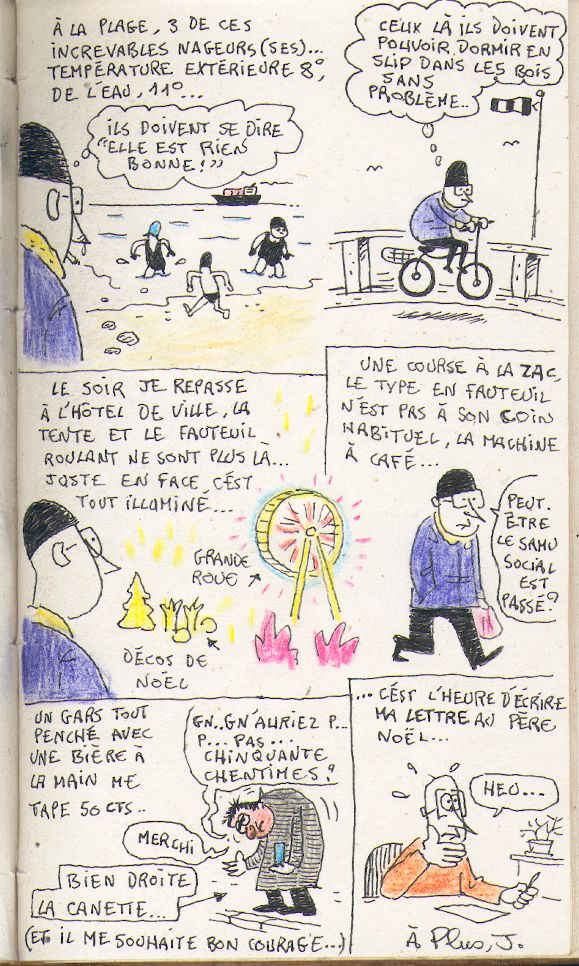 À LA PLAGE, 3 DE CES
INCREVABLES NAGEURS(SES)...
TEMPÉRATURE EXTÉRIEURE 8°,
DE L'EAU, 11°...
ILS DOIVENT SE DIRE
"ELLE EST RIEN
BONNE!"
CEUX LÀ ILS DOIVENT
POUVOIR DORMIR EN
SLIP DANS LES BOIS
SANS
PROBLÈME..
LE SOIR JE REPASSE
À L'HÔTEL DE VILLE, LA
TENTE ET LE FAUTEUIL
ROULANT NE SONT PLUS LÀ...
JUSTE EN FACE C'EST
TOUT ILLUMINÉ...
GRANDE
ROUE
DÉCOS DE
NOËL
UNE COURSE À LA ZAC,
LE TYPE EN FAUTEUIL
N'EST PAS À SON COIN
HABITUEL, LA MACHINE
À CAFÉ...
PEUT-
ÊTRE
LE SAMU
SOCIAL
EST
PASSÉ?
UN GARS TOUT
PENCHÉ AVEC
UNE BIÈRE À
LA MAIN ME
TAPE 50 CTS..
GN..GN'AURIEZ P...
P... PAS...
CHINQUANTE
CHENTIMES?
MERCHI
BIEN DROITE
LA CANETTE...
(ET IL ME SOUHAITE BON COURAGE...)
... C'EST L'HEURE D'ÉCRIRE
MA LETTRE AU PÈRE
NOËL...
HEU...
À Plus, J.